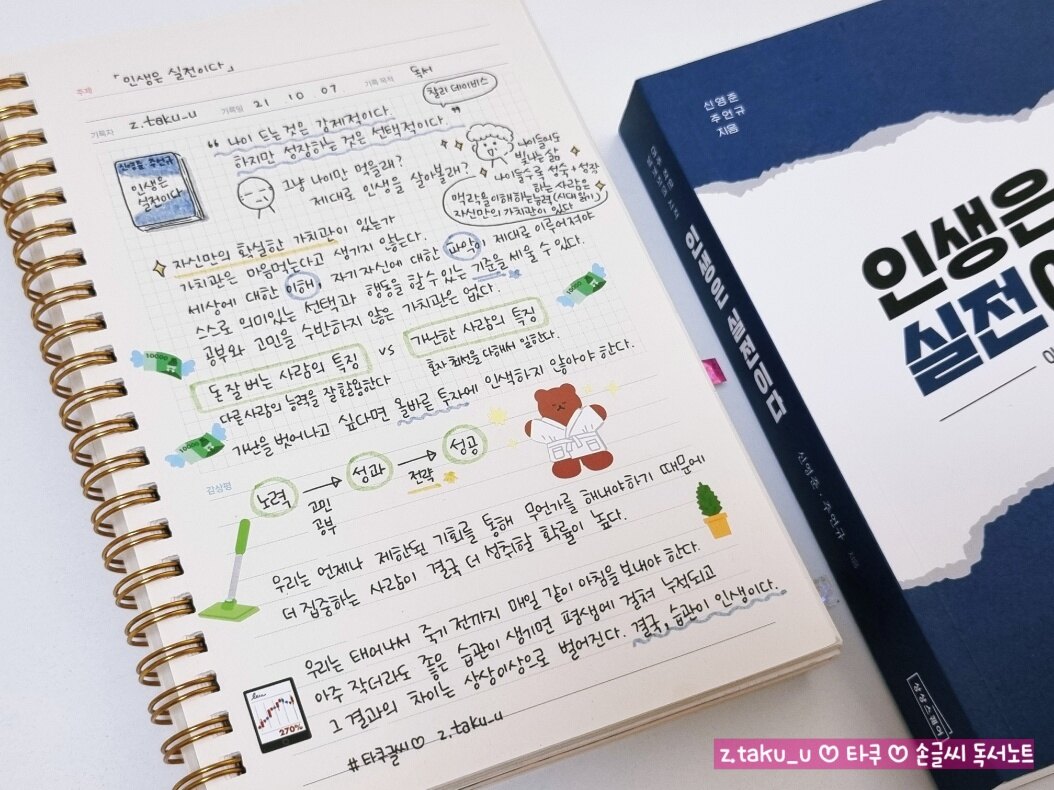 주제
「인생은 실전이다」
기록자
z.taku_u
기록일
21 10 07
기록 목적
독서
찰리 데이비스
" 나이 드는 것은 강제적이다.
하지만 성장하는 것은 선택적이다. "
신영준 주언규
인생은
실전이다
그냥 나이만 먹을래?
제대로 인생을 살아볼래?
나이들어도
빛나는 삶
나이들수록 성숙+성장
하는 사람은
맥락을이해하는능력(시대 읽기)
자신만의 가치관이 있다
자신만의 확실한 가치관이 있는가
가치관은 마음먹는다고 생기지 않는다.
세상에 대한 이해, 자기 자신에 대한 파악이 제대로 이루어져야
스스로 의미있는 선택과 행동을 할 수 있는 기준을 세울 수 있다.
공부와 고민을 수반하지 않은 가치관은 없다.
10000
10000
10000
돈 잘 버는 사람의 특징 vs 가난한 사람의 특징
다른 사람의 능력을 잘 활용한다
혼자 최선을 다해서 일한다.
가난을 벗어나고 싶다면 올바른 투자에 인색하지 않아야 한다.
감상평
노력 → 성과 → 성공
고민
공부
전략
우리는 언제나 제한된 기회를 통해 무언가를 해내야하기 때문에
더 집중하는 사람이 결국 더 성취할 확률이 높다.
우리는 태어나서 죽기 전까지 매일 같이 아침을 보내야 한다.
아주 작더라도 좋은 습관이 생기면 평생에 걸쳐 누적되고
그 결과의 차이는 상상이상으로 벌어진다. 결국, 습관이 인생이다.
270%
#타쿠글씨♡ z.taku_u
신영준
주언규
지음
인생은
실전이
인생은 실전이다
신영준 · 주언규 지음
상상스퀘어
z.taku_u ♡ 타쿠 ♡ 손글씨 독서노트